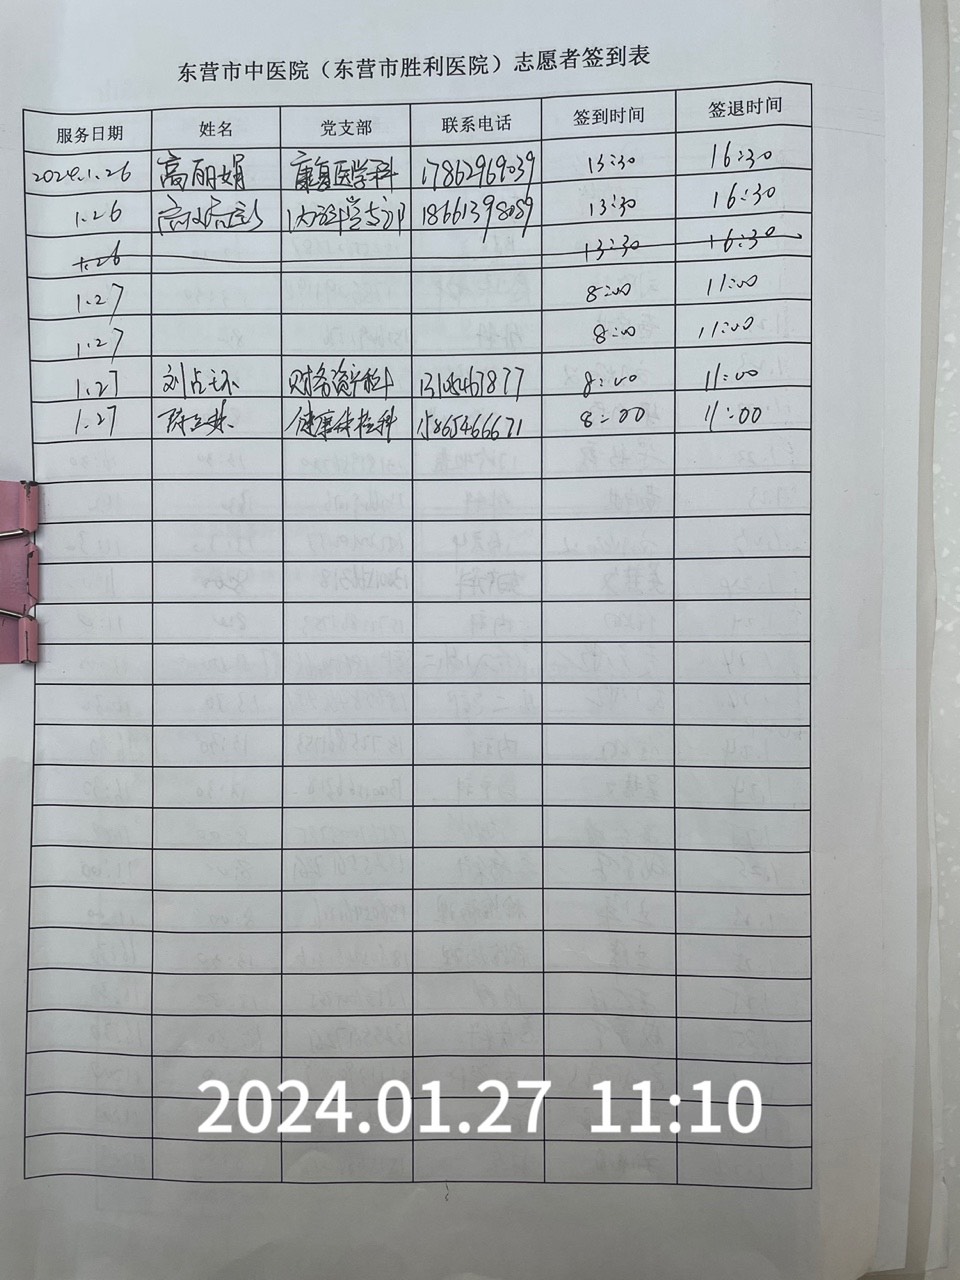 东营市中医院（东营市胜利医院）志愿者签到表
服务日期 姓名 党支部 联系电话 签到时间 签退时间
2024.1.26 高丽娟 康复医学科 17862969039 13:30 16:30
1.26 18661398089 13:30 16:30
1.26 13:30 16:30
1.27 8:00 11:00
1.27 8:00 11:00
1.27 刘占环 财务资产科 8:00 11:00
1.27 健康体检科 15865466671 8:00 11:00
2024.01.27 11:10